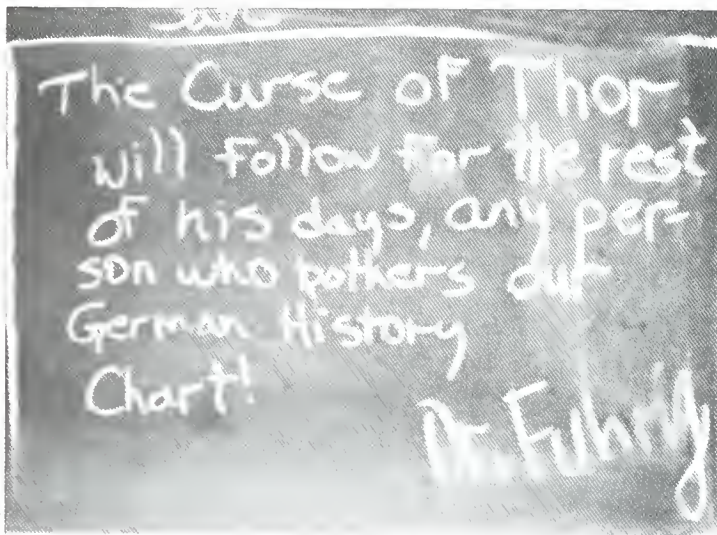 Save
The Curse of Thor
will follow for the rest
of his days, any per-
son who bothers our
German History
Chart!
Dr. Fuhrig